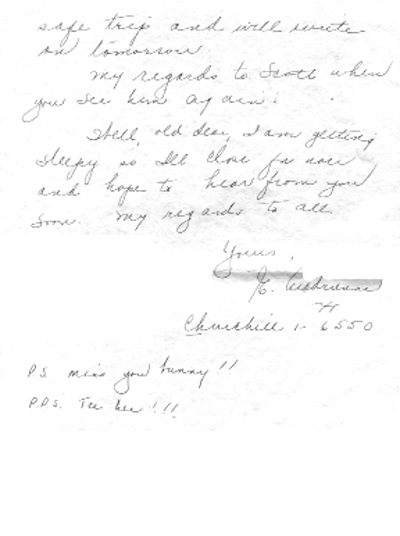 safe trip and will write
on tomorrow
My regards to Scott when
you see him again!
Well, old dear, I am getting
sleepy so I'll close for now
and hope to hear from you
soon. My regards to all.
Yours,
E.
Churchill 1-6550
P.S. miss you bunny!!
P.P.S. Tee hee!!!